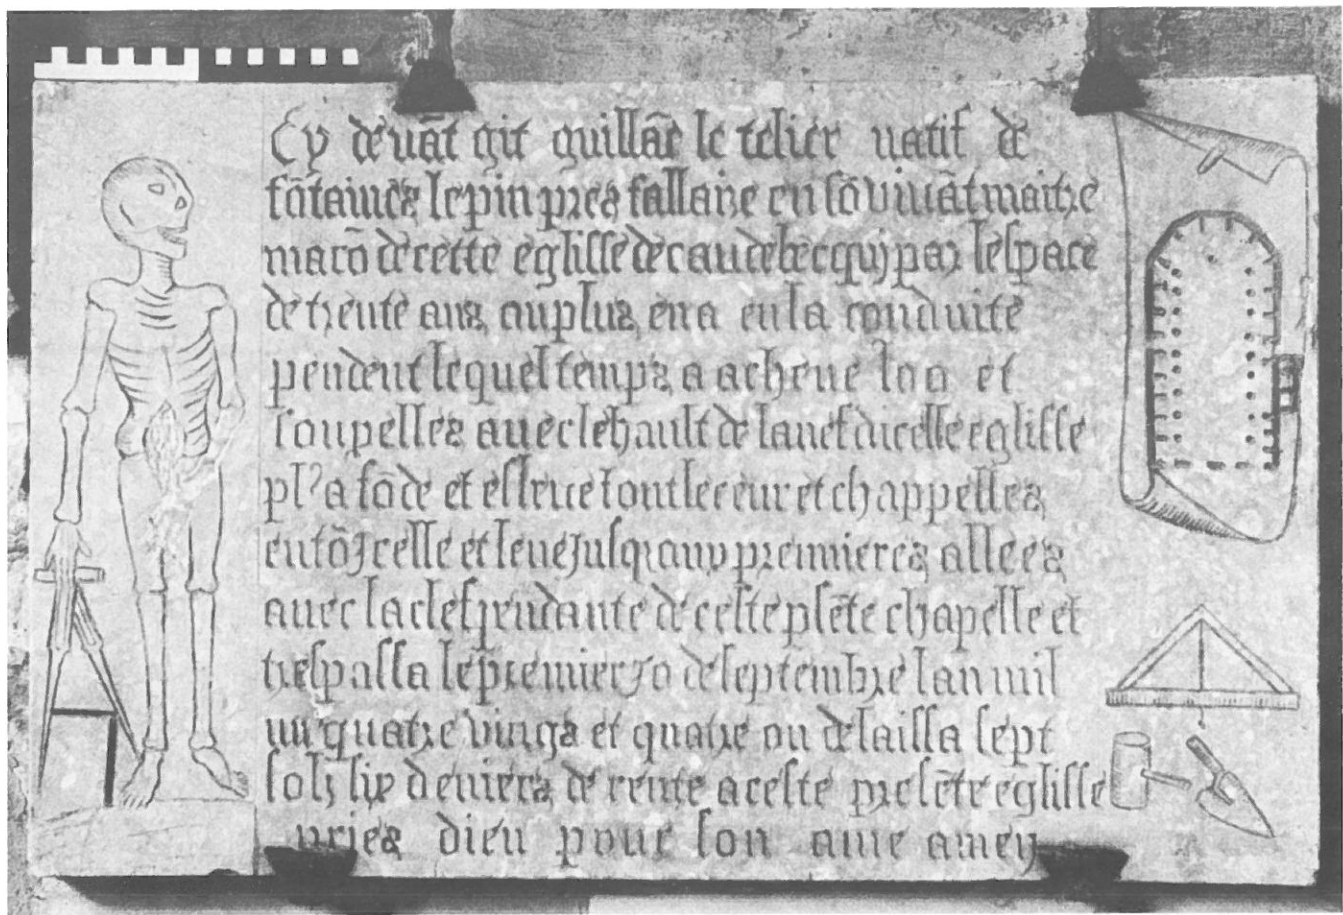 Cy deuāt git guillāe le telier natif de
fōtaines le pin pres fallaize en sō viuāt maitre
macō de cette eglisse de caudebec quj par lespace
de trente ans ou plus en a eu la conduite
pendent lequel temps a acheue et
soupelles auec le hault de la nef dicelle eglisse
plꝰ a fōde et esleue tout le ceur et chappelles
entō Jcelle et leue Jusqz aux premieres allees
auec la clef pendante de ceste psēte chapelle et
trespassa le premier Jo de septembre lan mil
quatre vings et quatre ou delaissa sept
solz six deniers de rente a ceste presēte eglisse
pries dieu pour son ame amen